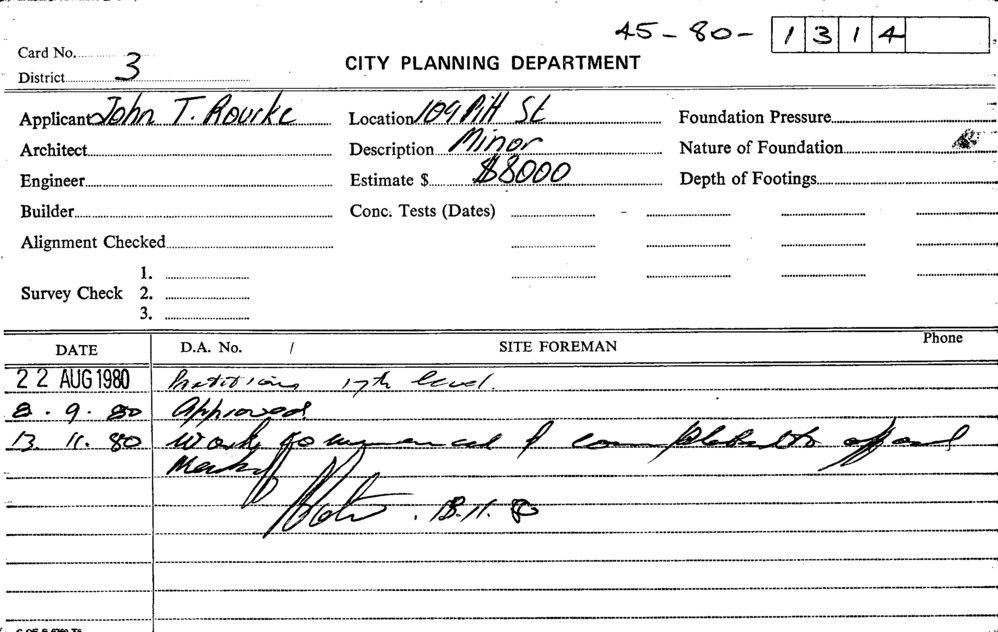 45-80-1314
Card No.
District 3
CITY PLANNING DEPARTMENT
Applicant John T. Rourke
Location 109 Pitt St
Foundation Pressure
Architect
Description Minor
Nature of Foundation
Engineer
Estimate $ $8000
Depth of Footings
Builder
Conc. Tests (Dates)
Alignment Checked
Survey Check 1.
2.
3.
DATE D.A. No. / SITE FOREMAN Phone
22 AUG 1980 Partitions 17th level.
2.9.80 Approved
13.11.80 Work commenced & completed to appd
13.11.80